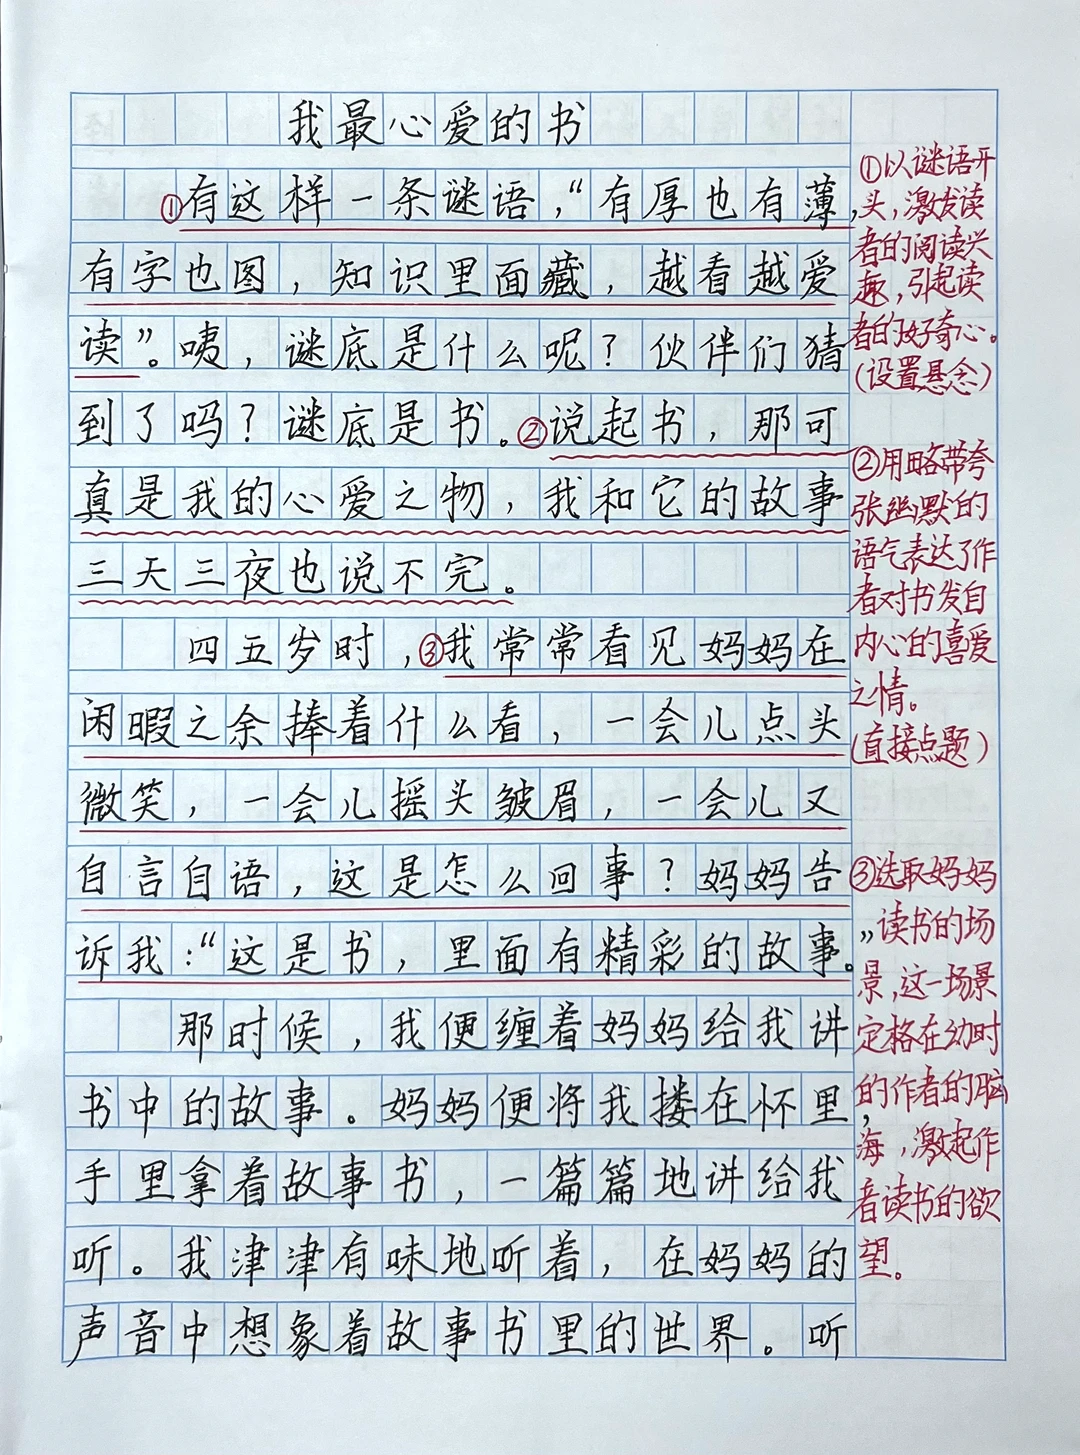 我最心爱的书
①有这样一条谜语，“有厚也有薄，
有字也图，知识里面藏，越看越爱
读”。咦，谜底是什么呢？伙伴们猜
到了吗？谜底是书。②说起书，那可
真是我的心爱之物，我和它的故事
三天三夜也说不完。
四五岁时，③我常常看见妈妈在
闲暇之余捧着什么看，一会儿点头
微笑，一会儿摇头皱眉，一会儿又
自言自语，这是怎么回事？妈妈告
诉我：“这是书，里面有精彩的故事。”
那时候，我便缠着妈妈给我讲
书中的故事。妈妈便将我搂在怀里，
手里拿着故事书，一篇篇地讲给我
听。我津津有味地听着，在妈妈的
声音中想象着故事书里的世界。听
①以谜语开
头，激发读
者的阅读兴
趣，引起读
者的好奇心。
（设置悬念）
②用略带夸
张幽默的
语气表达了作
者对书发自
内心的喜爱
之情。
（直接点题）
③选取妈妈
读书的场
景，这一场景
定格在幼时
的作者的脑
海，激起作
者读书的欲
望。